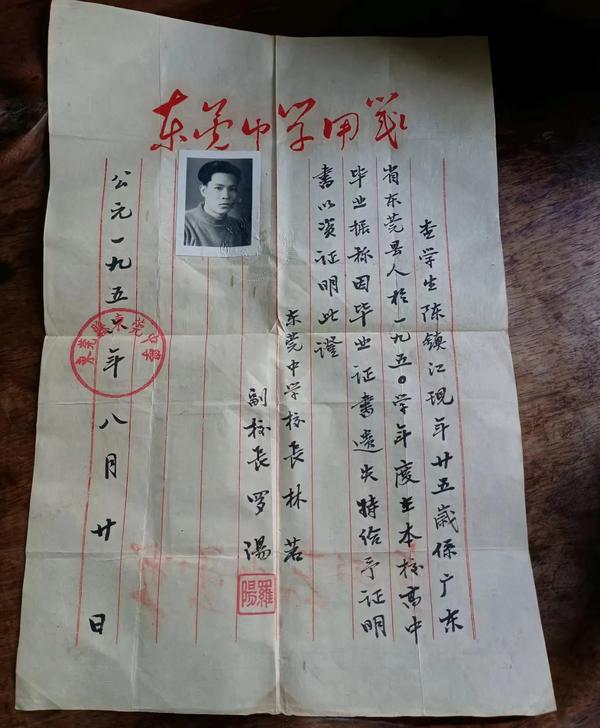 东莞中学用笺
查学生陈镇江现年廿五歲係广东
省东莞县人於一九五〇学年度在本校高中
毕业据称因毕业证書遗失特给予证明
書以资证明此證
东莞中学校長林若
副校長罗陽
羅陽
公元一九五六年八月廿日
東莞縣東莞中學